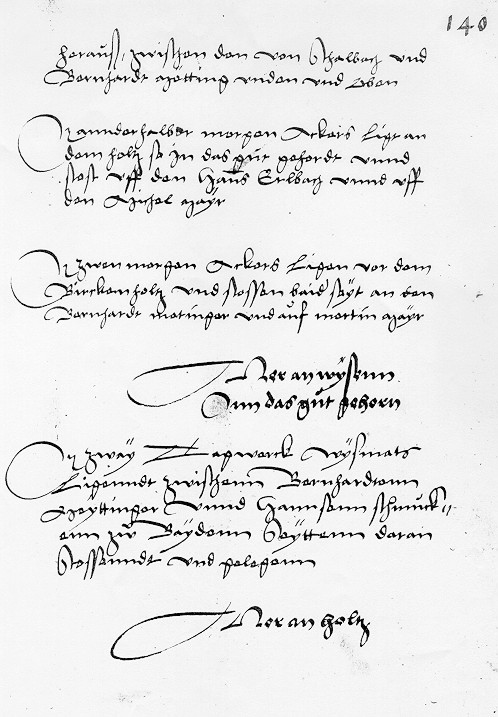 140
heraus, zwischen den von Schalbach und
Bernhardt Mötting unden und Oben
Item anderhalber morgen Ackers Ligt an
dem holtz so in das gut gehördt unnd
stost uff den Hans Erlbach unnd uff
den Michel Mayr
Item zwen morgen Ackers Ligen vor dem
Birckenholtz und stossen baid seyt an den
Bernhardt metinger und auf mertin Mayr
Mer an wysenn
Inn das gut gehorn
Item zway Tagwerck Wysmats
Ligenndt zwischenn Bernhardtenn
Meyttinger Unnd Hannsenn schmuck-
enn zu Baydenn Seyttenn daran
Stossenndt und gelegenn
Mer an holtz